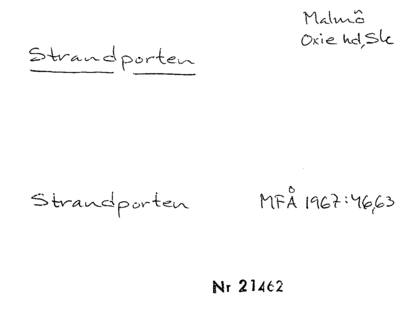 Malmö
Oxie hd, Sk
Strandporten
Strandporten MFÅ 1967:46,63
Nr 21462